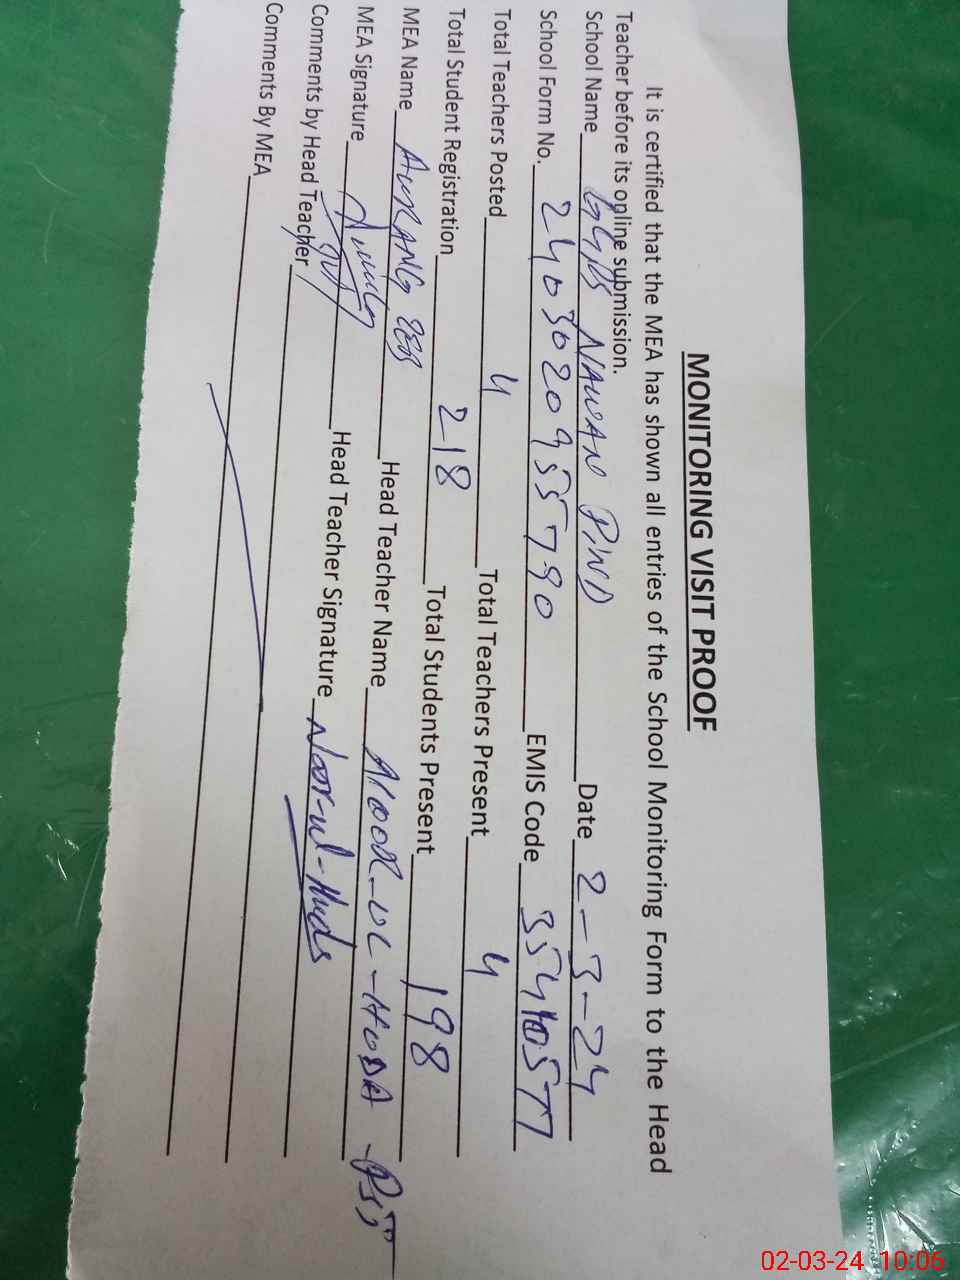 MONITORING VISIT PROOF
It is certified that the MEA has shown all entries of the School Monitoring Form to the Head
Teacher before its online submission.
School Name NAWAN PIND Date 2-3-24
School Form No. 2403020955790 EMIS Code
Total Teachers Posted 4 Total Teachers Present 4
Total Student Registration 218 Total Students Present 198
MEA Name AURANG ZEB Head Teacher Name NOOR-UL-HUDA - PST
MEA Signature Head Teacher Signature Noor-ul-Huda
Comments by Head Teacher
Comments By MEA
02-03-24 10:06